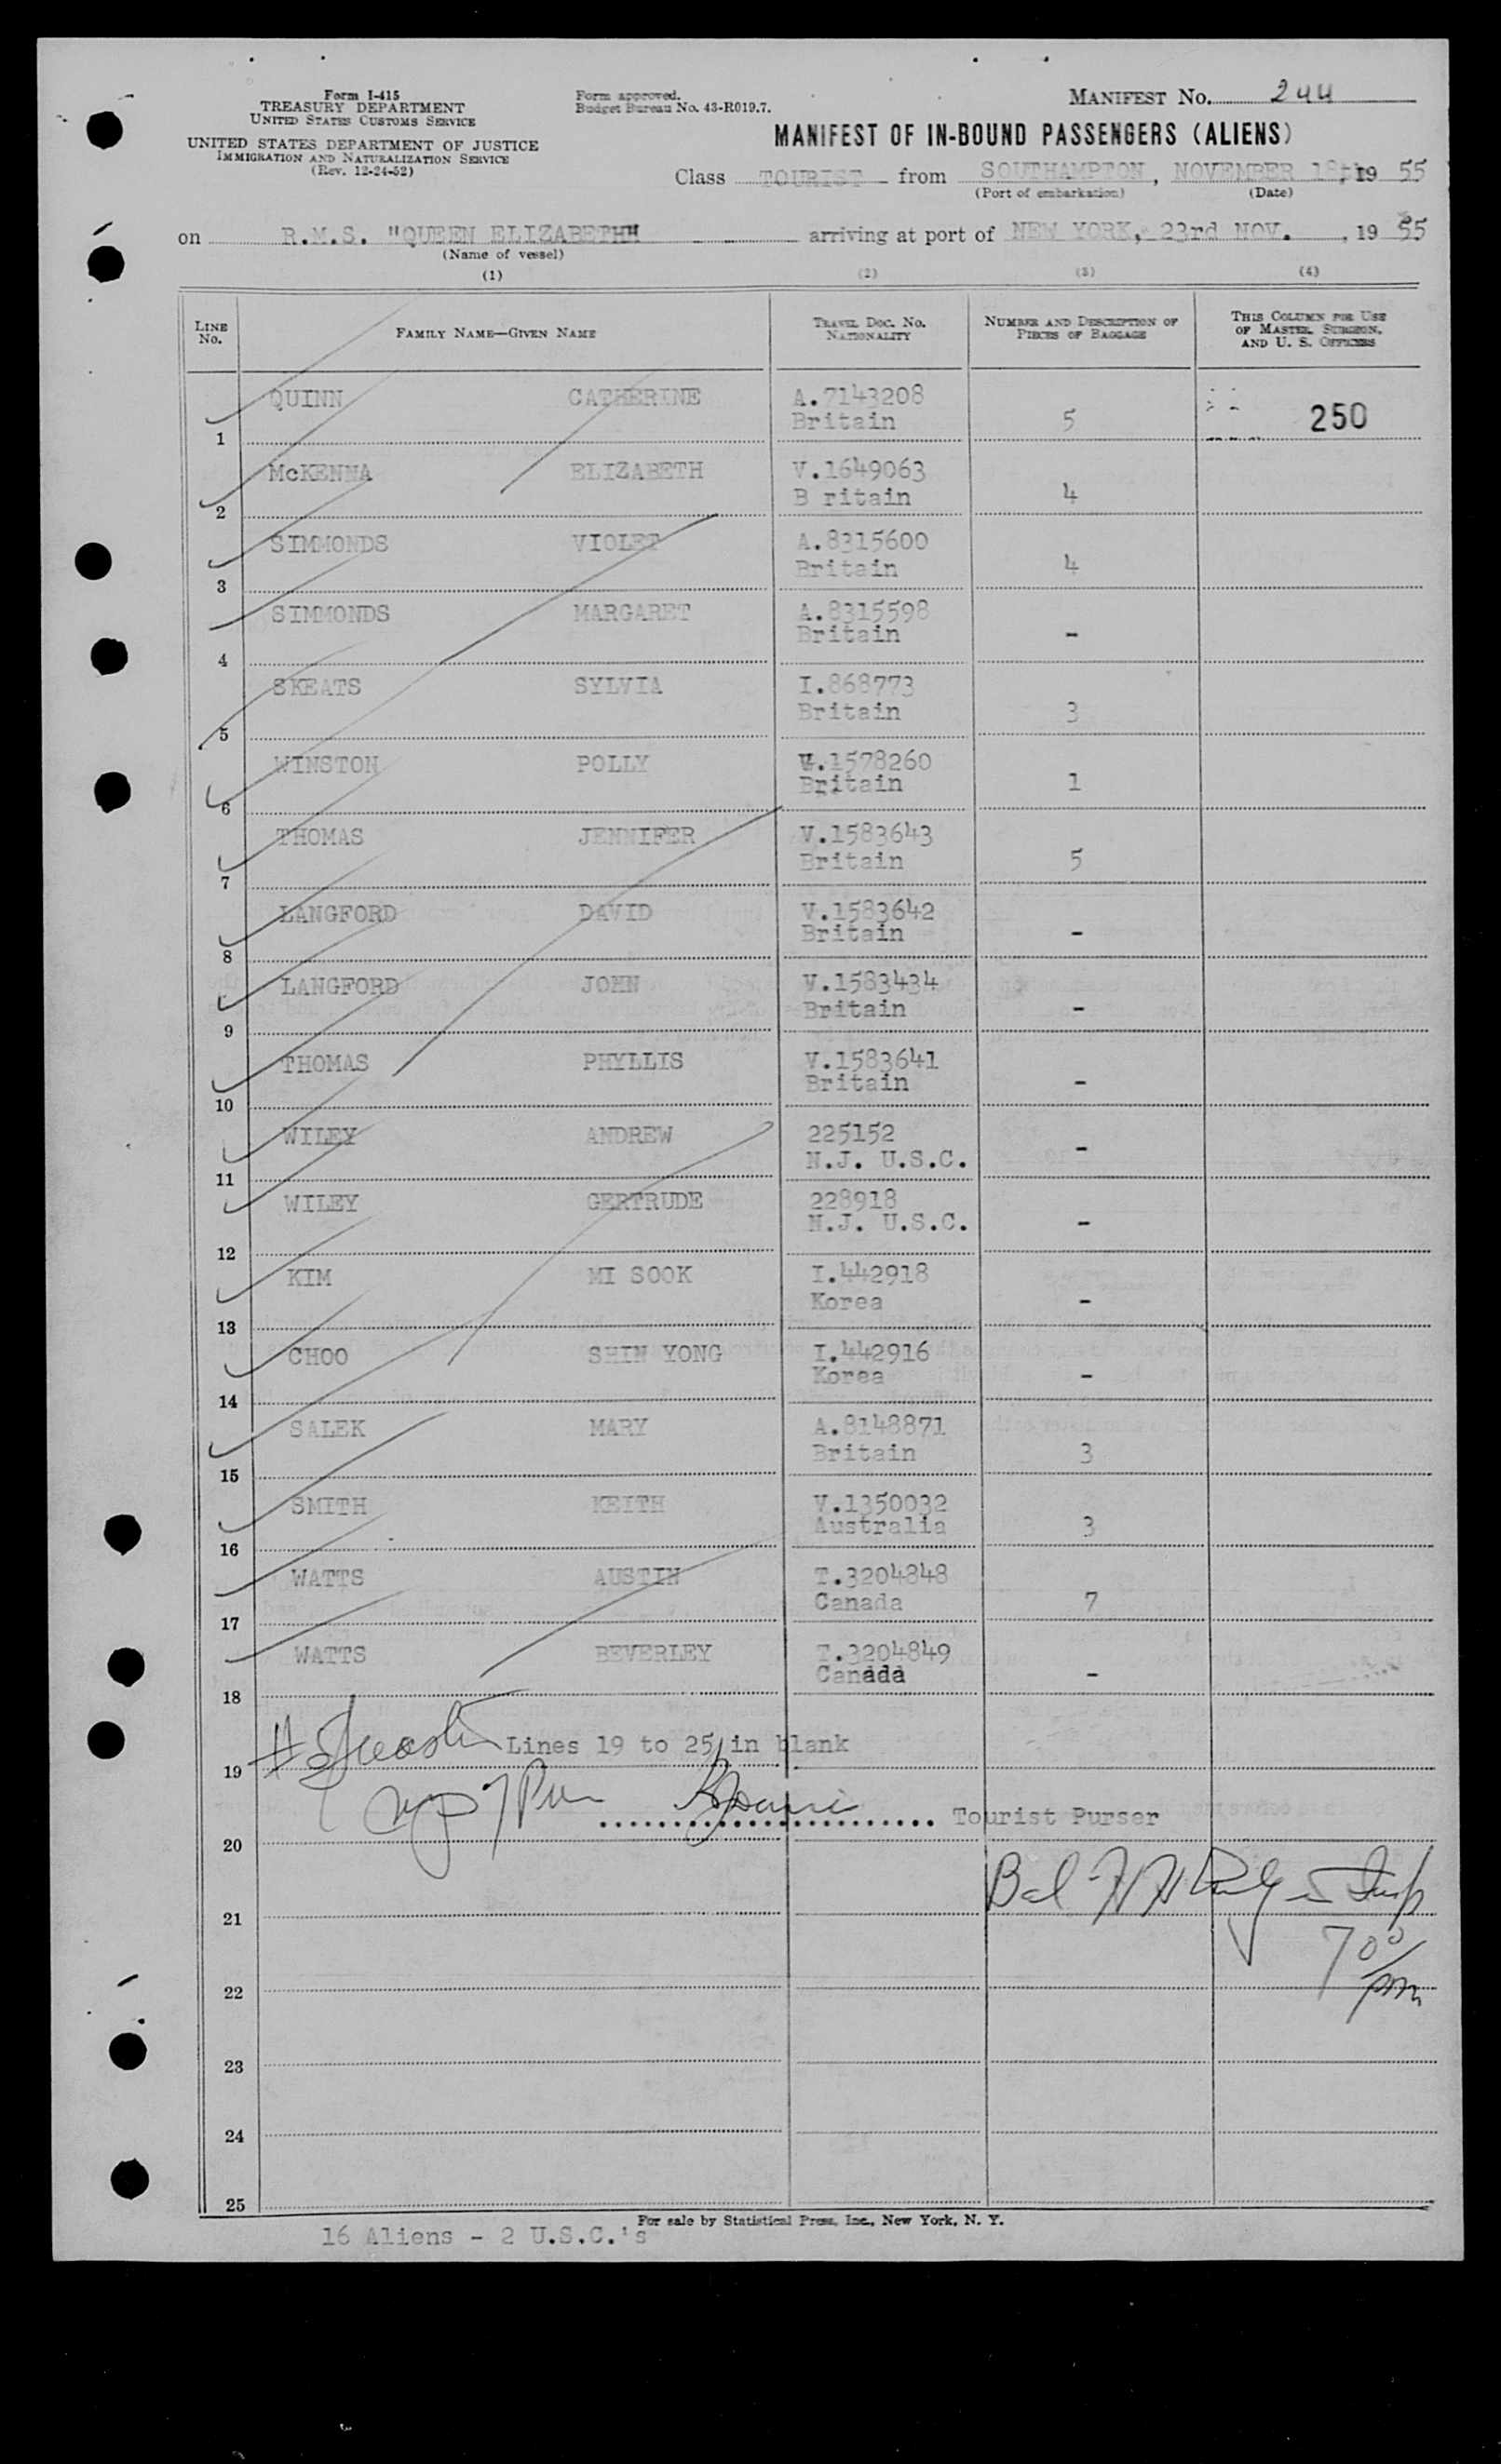 Form I-415
TREASURY DEPARTMENT
UNITED STATES CUSTOMS SERVICE
UNITED STATES DEPARTMENT OF JUSTICE
IMMIGRATION AND NATURALIZATION SERVICE
(Rev. 12-24-52)
Form approved.
Budget Bureau No. 43-R019.7.
MANIFEST NO. 244
MANIFEST OF IN-BOUND PASSENGERS (ALIENS)
Class TOURIST from SOUTHAMPTON, NOVEMBER 18th, 19 55
(Port of embarkation) (Date)
on R.M.S. "QUEEN ELIZABETH" arriving at port of NEW YORK, 23rd NOV. , 19 55
(Name of vessel)
(1) (2) (3) (4)
LINE NO. FAMILY NAME—GIVEN NAME TRAVEL DOC. NO. NATIONALITY NUMBER AND DESCRIPTION OF PIECES OF BAGGAGE THIS COLUMN FOR USE OF MASTER, SURGEON, AND U. S. OFFICERS
QUINN CATHERINE A.7143208
1 Britain 5 250
McKENNA ELIZABETH V.1649063
2 B ritain 4
SIMMONDS VIOLET A.8315600
3 Britain 4
SIMMONDS MARGARET A.8315598
4 Britain -
SKEATS SYLVIA I.868773
5 Britain 3
WINSTON POLLY V.1578260
6 Britain 1
THOMAS JENNIFER V.1583643
7 Britain 5
LANGFORD DAVID V.1583642
8 Britain -
LANGFORD JOHN V.1583434
9 Britain -
THOMAS PHYLLIS V.1583641
10 Britain -
WILEY ANDREW 225152
11 N.J. U.S.C. -
WILEY GERTRUDE 228918
12 N.J. U.S.C. -
KIM MI SOOK I.442918
13 Korea -
CHOO SHIN YONG I.442916
14 Korea -
SALEK MARY A.8148871
15 Britain 3
SMITH KEITH V.1350032
16 Australia 3
WATTS AUSTIN T.3204848
17 Canada 7
WATTS BEVERLEY T.3204849
18 Canada -
19 Lines 19 to 25 in blank
Tourist Purser
20
21
7 00
22 pm
23
24
25
For sale by Statistical Press, Inc., New York, N. Y.
16 Aliens - 2 U.S.C.'s